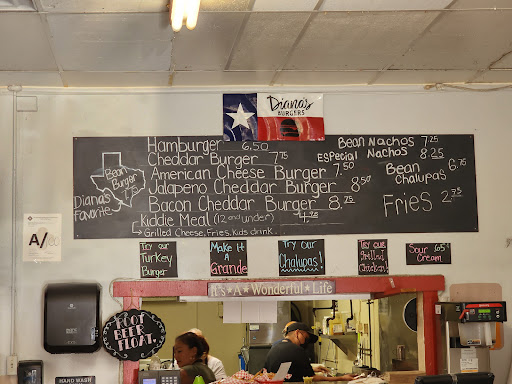 Diana's
BURGERS
Hamburger 6.50
Cheddar Burger 7.75
American Cheese Burger 7.50
Jalapeno Cheddar Burger 8.50
Bacon Cheddar Burger 8.75
Kiddie Meal (12 and under)
Grilled Cheese, Fries, Kids drink
Bean Nachos 7.25
Especial Nachos 8.25
Bean
Chalupas 6.75
Fries 2.75
Bean
Burger
7.75
Diana's
Favorite
A
Try our
Turkey
Burger
Make it
A
Grande
Try our
Chalupas!
Try our
Grilled
Chicken!
Sour 65¢
Cream
It's A Wonderful Life
ROOT
BEER
FLOAT
HAND WASH